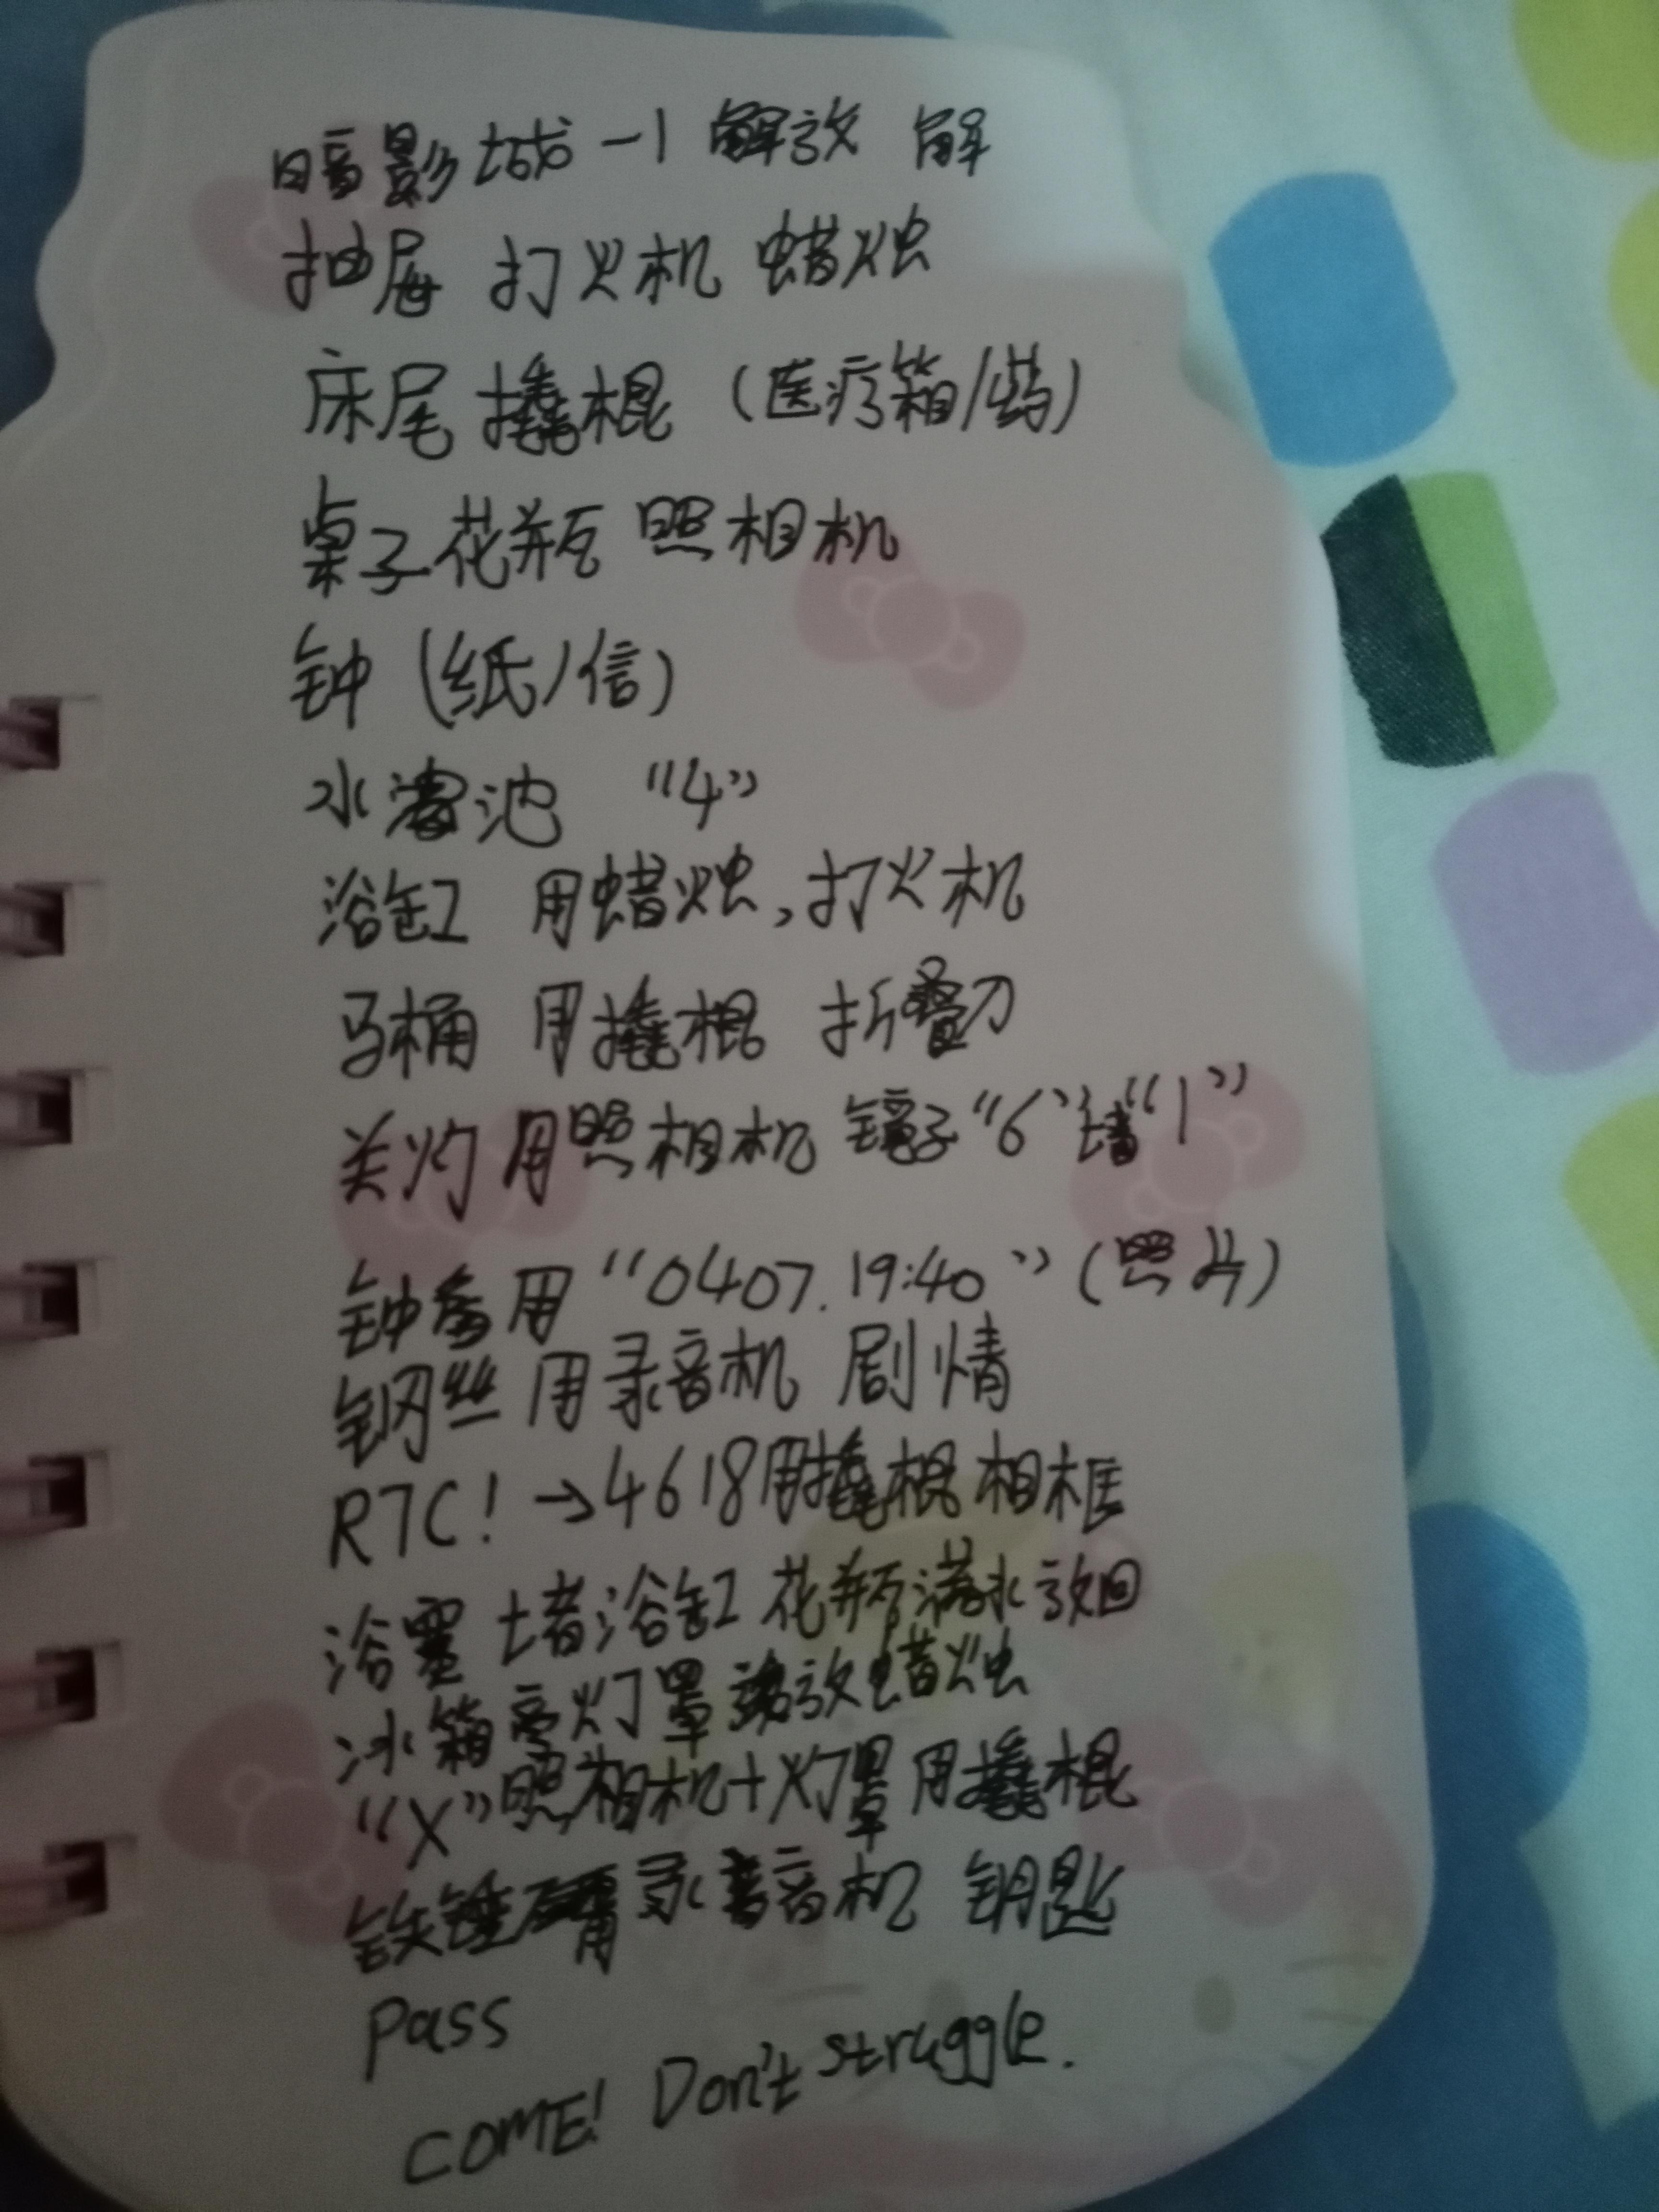 暗影城-1 解放 解
抽屉 打火机 蜡烛
床尾 撬棍 (医疗箱/药)
桌子 花瓶 照相机
钟 (纸/信)
水池 "4"
浴缸 用蜡烛,打火机
马桶 用撬棍 折叠刀
关灯 用照相机 镜子"6"墙"1"
钟 用"0407.19:40"(照片)
钢丝 用录音机 剧情
RTC! →4618用撬棍 相框
浴室 堵浴缸 花瓶满水放回
冰箱 灯罩 放蜡烛
"X"照相机+灯罩 用撬棍
铁锤 录音机 钥匙
Pass
COME! Don't struggle.